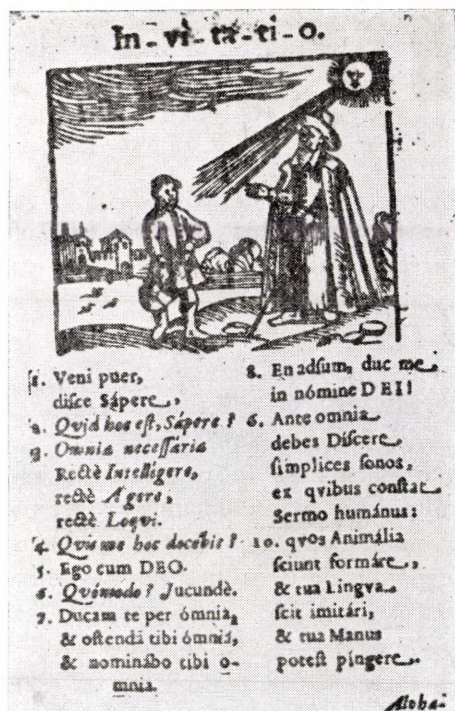 In-vi-ta-ti-o.
1. Veni puer,
disce Sápere,
2. Qvid hoc est, Sapere?
3. Omnia necessaria
Rectè Intelligere,
rectè Agere,
rectè Loqui.
4. Qvis me hoc docebit?
5. Ego cum DEO.
6. Qvómodo? Jucundè.
7. Ducam te per ómnia,
& ostendã tibi ómniá,
& nominábo tibi o-
mnia.
8. En adsum, duc me
in nómine DEI!
6. Ante omnia
debes Discere
simplices sonos,
ex qvibus constat
Sermo humánus:
10. qvos Animália
sciunt formáre,
& tua Lingva
scit imitári,
& tua Manus
potest pingere.